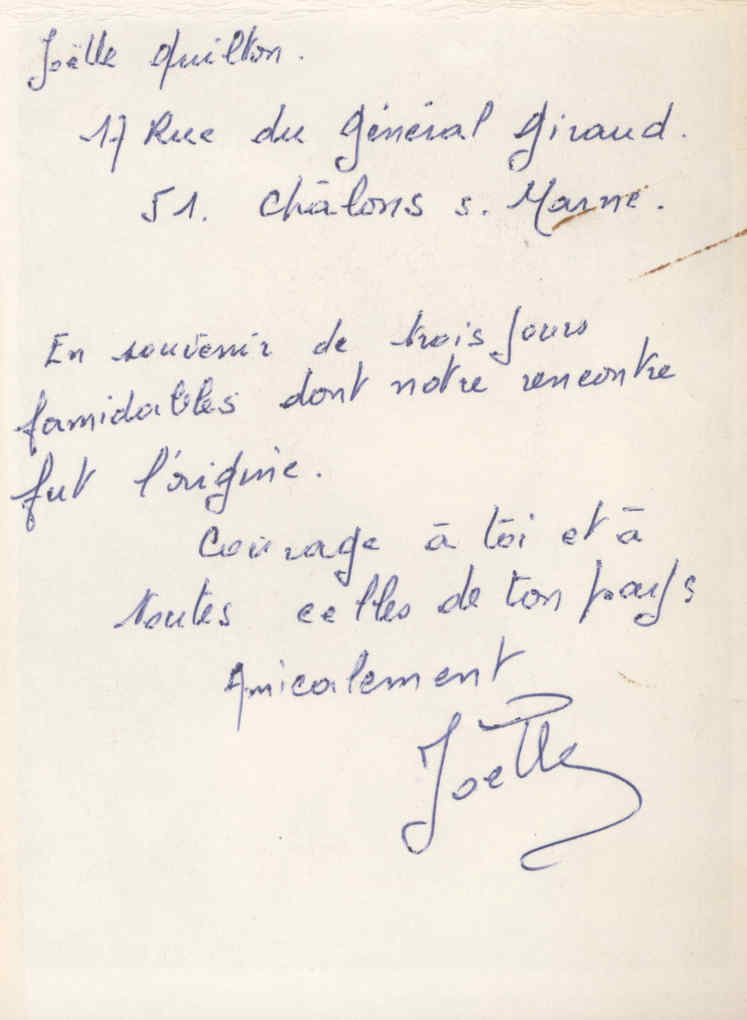 Joëlle Quilton.
17 Rue du Général Giraud.
51. Châlons s. Marne.
En souvenir de trois jours
formidables dont notre rencontre
fut l'origine.
Courage à toi et à
toutes celles de ton pays
Amicalement
Joëlle